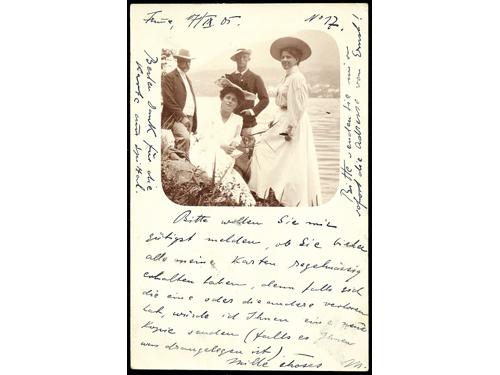 7/IX 05.
No 17.
Besten Dank für die
Karte aus Spittal.
Bitte senden Sie mir
sofort die Adresse von Ernst!
Bitte wollen Sie mir
gütigst melden, ob Sie bisher
alle meine Karten regelmässig
erhalten haben, denn falls sich
die eine oder die andere verloren
hat, würde ich Ihnen eine neue
Kopie senden (falls es Ihnen
was drangelegen ist)
Mille choses
M.